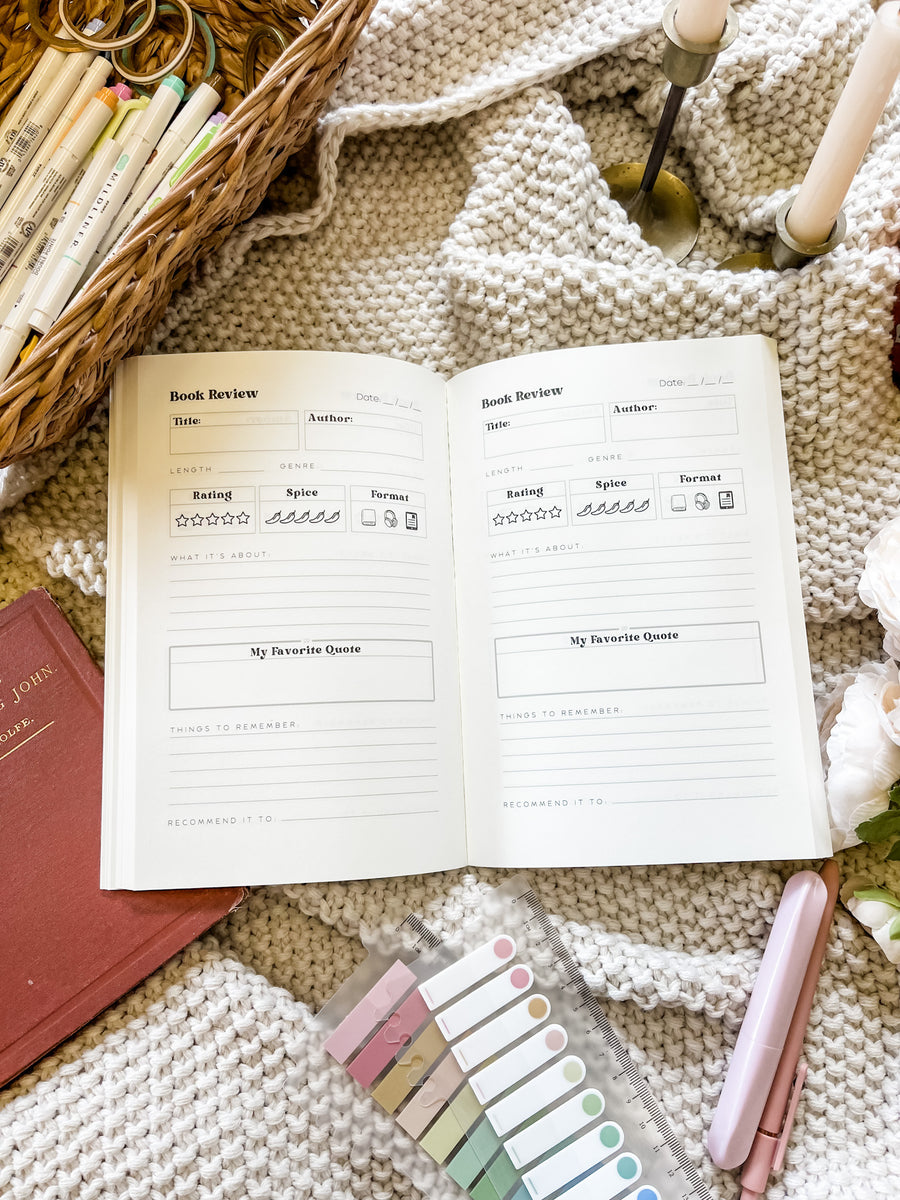 MILDLINER
Book Review
Date: __/__/__
Title:
Author:
LENGTH ______ GENRE
Rating
Spice
Format
WHAT IT'S ABOUT:
My Favorite Quote
THINGS TO REMEMBER:
RECOMMEND IT TO:
Book Review
Date: __/__/__
Title:
Author:
LENGTH ______ GENRE
Rating
Spice
Format
WHAT IT'S ABOUT:
My Favorite Quote
THINGS TO REMEMBER:
RECOMMEND IT TO:
JOHN.